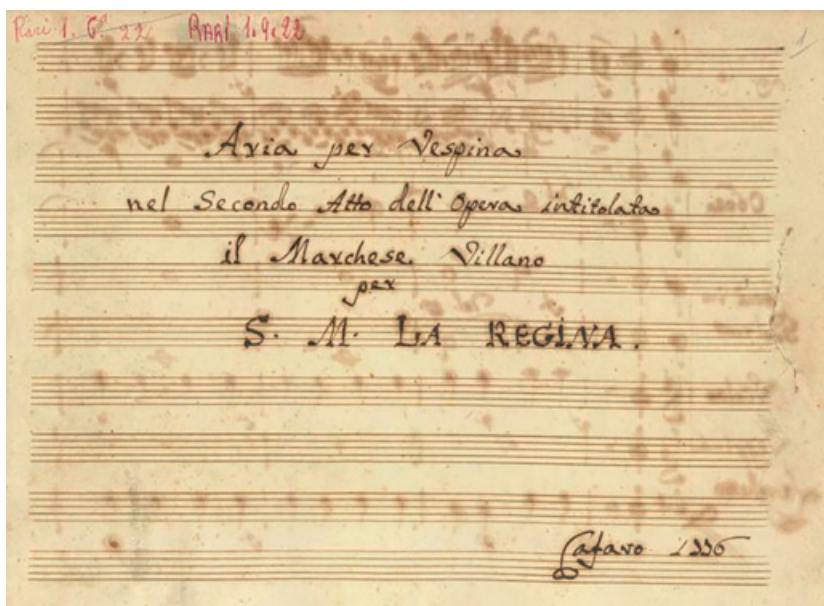 Rari 1. 6. 22 RARI 1.9.22
1
Aria per Vespina
nel Secondo Atto dell' Opera intitolata
il Marchese Villano
per
S. M. LA REGINA.
Cafaro 1776